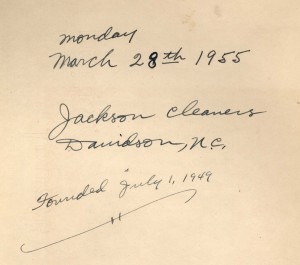 Monday
March 28th 1955
Jackson Cleaners
Davidson, N.C.
Founded July 1, 1949